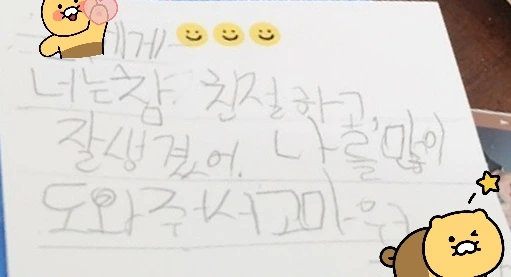 에게
너는 참 친절하고,
잘생겼어. 나를 많이
도와주서 고마워